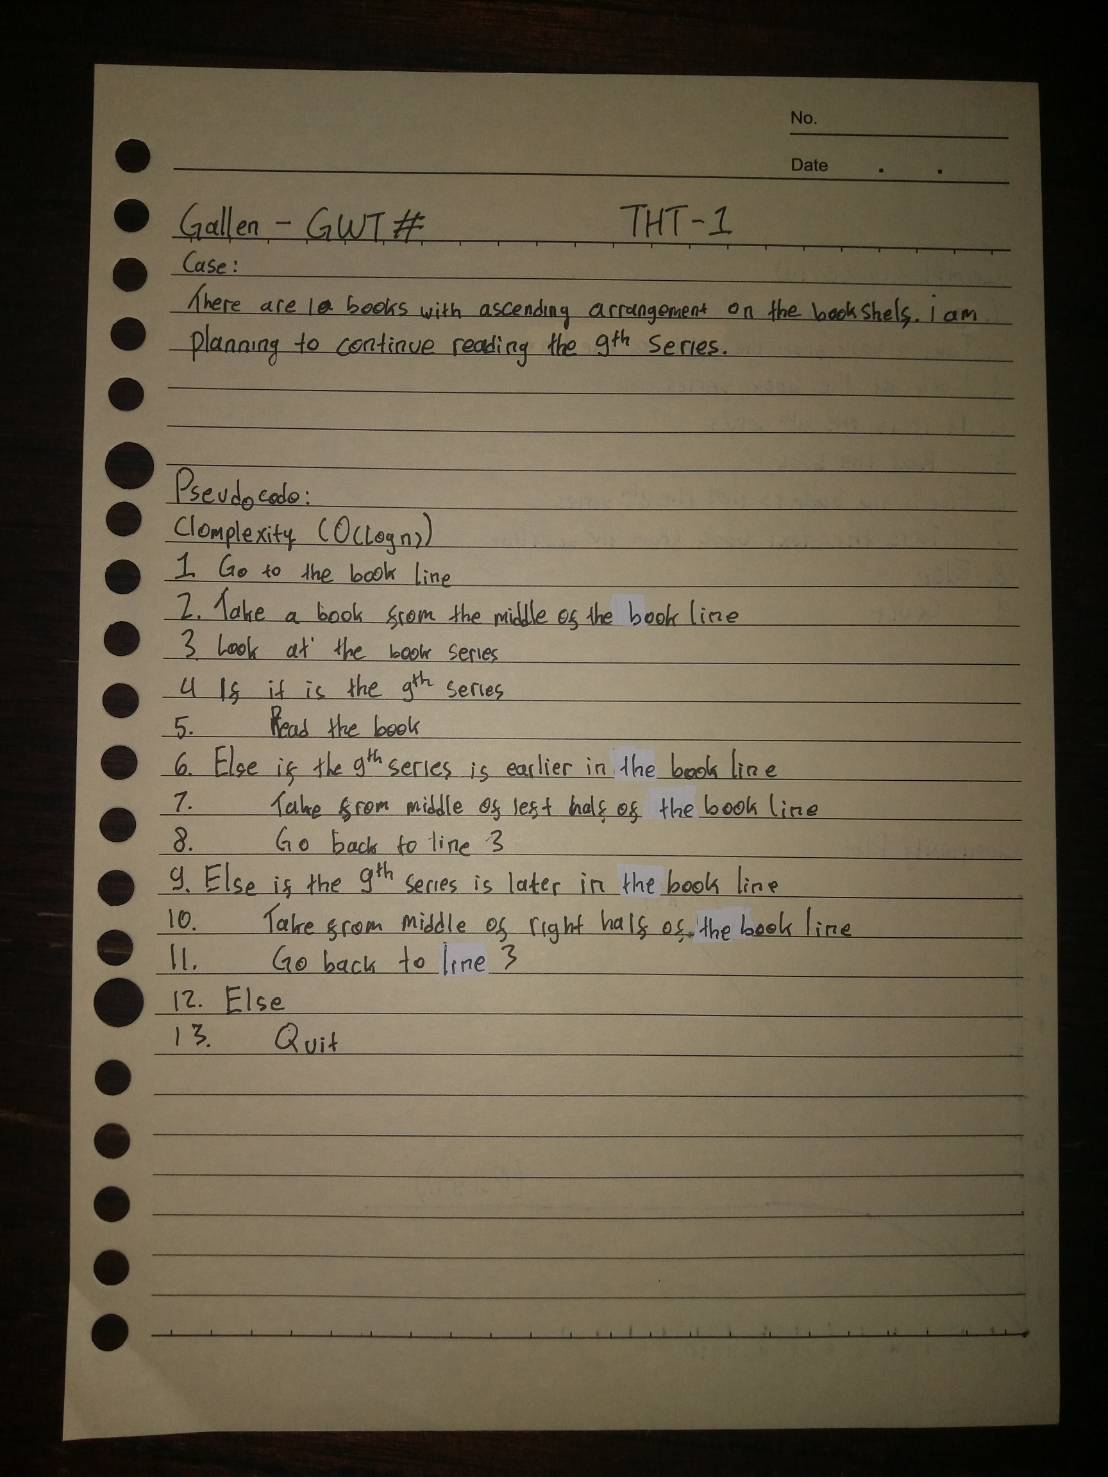 No.
Date . .
Gallen - GWT# THT-1
Case:
There are 10 books with ascending arrangement on the bookshelf. i am
planning to continue reading the 9th series.
Pseudocode:
Complexity (O(logn))
1. Go to the book line
2. Take a book from the middle of the book line
3 Look at the book series
4 If it is the 9th series
5. Read the book
6. Else if the 9th series is earlier in the book line
7. Take from middle of left half of the book line
8. Go back to line 3
9. Else if the 9th series is later in the book line
10. Take from middle of right half of the book line
11. Go back to line 3
12. Else
13. Quit